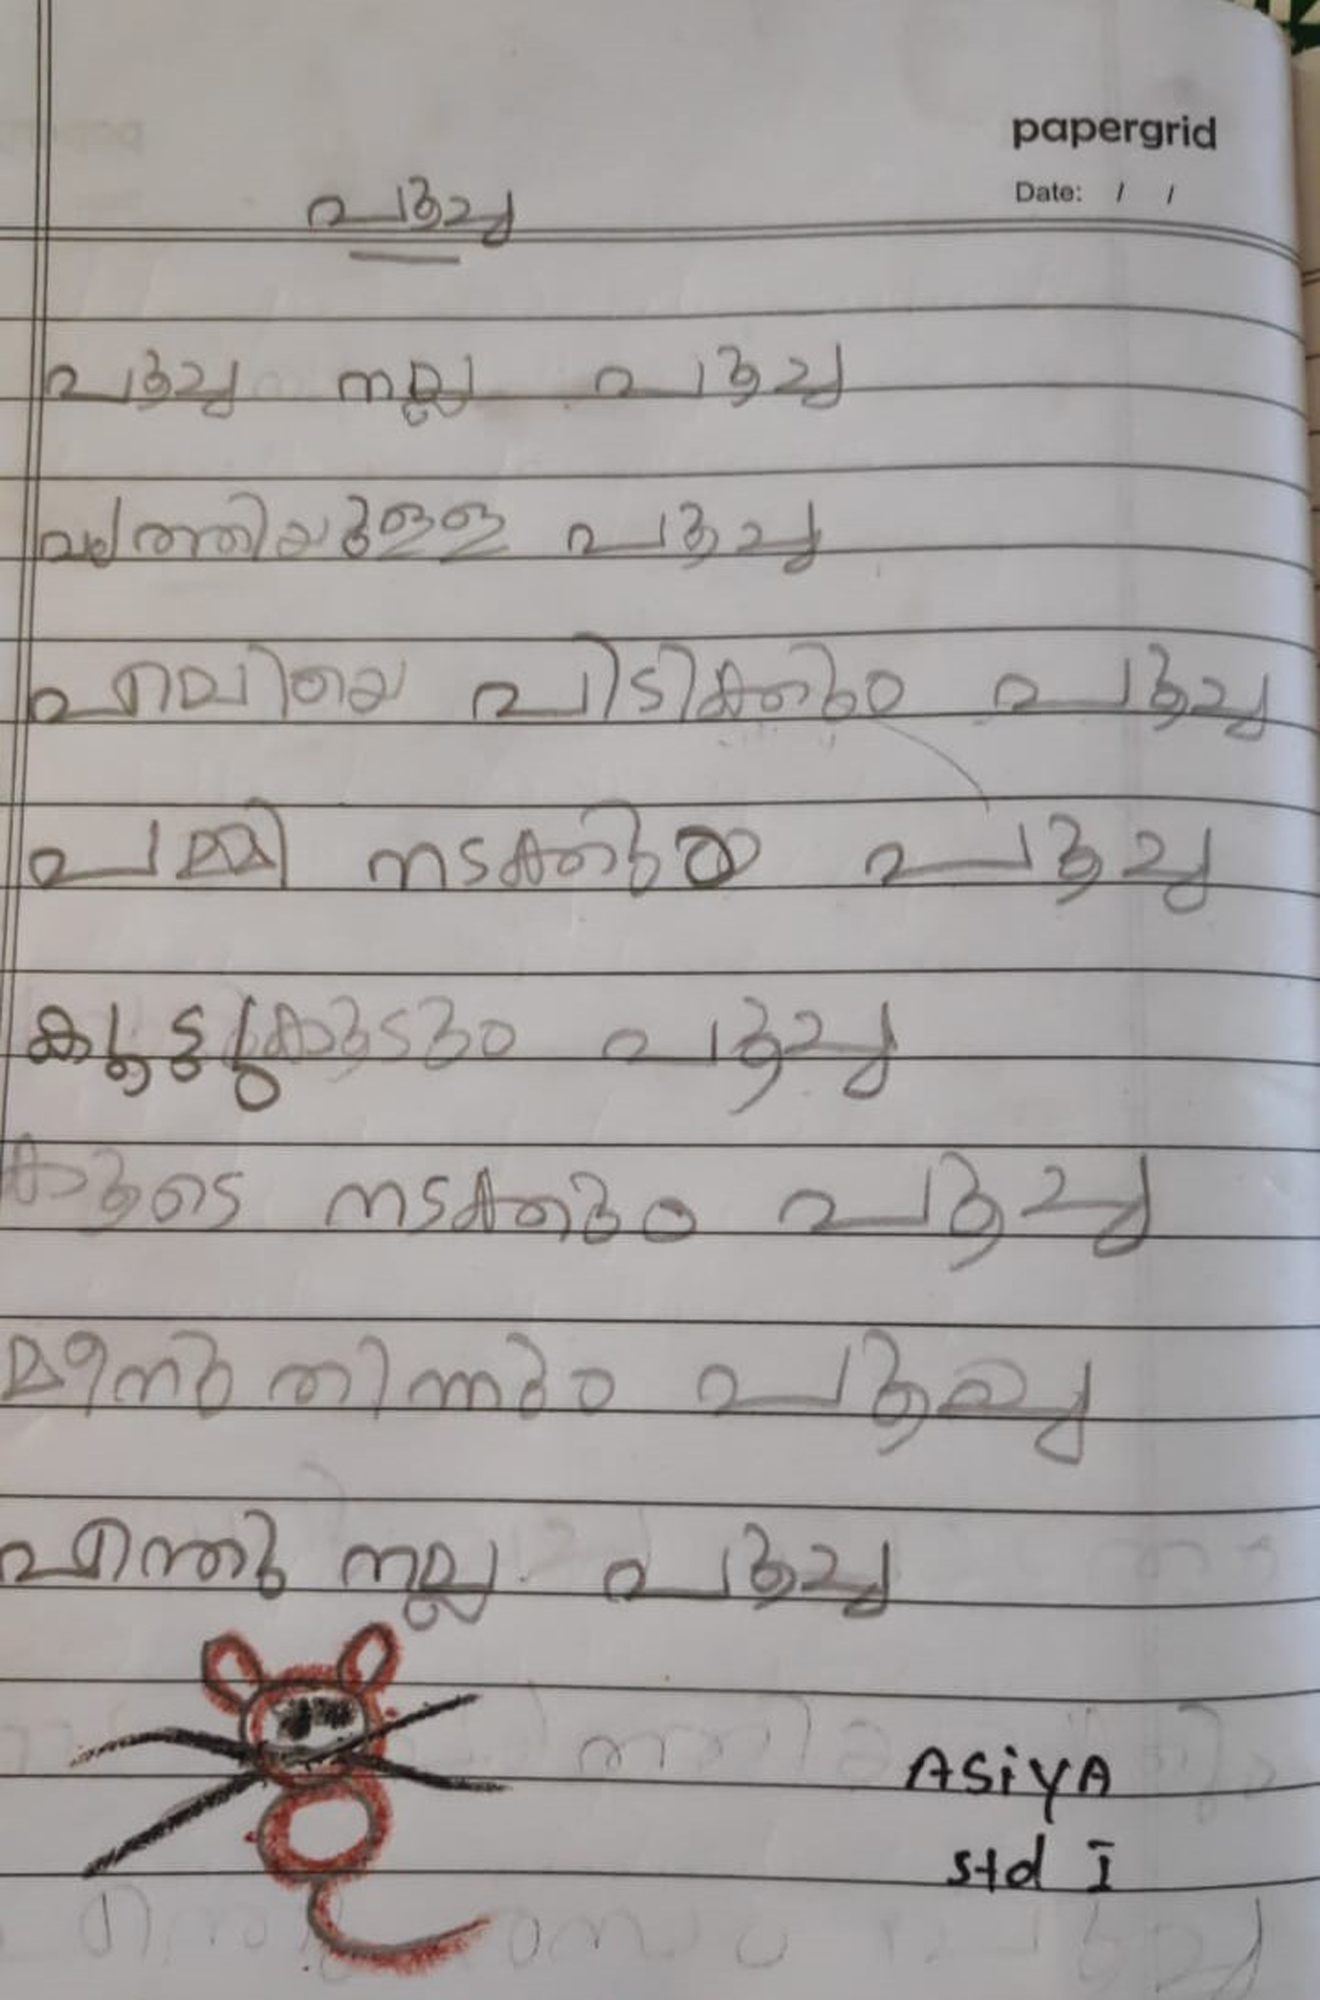 papergrid
Date: / /
പൂച്ച
പൂച്ച നല്ല പൂച്ച
വൃത്തിയുള്ള പൂച്ച
എലിയെ പിടിക്കും പൂച്ച
പമ്മി നടക്കും പൂച്ച
പൂച്ച
കൂടെ നടക്കും പൂച്ച
മീനു തിന്നും പൂച്ച
എന്തു നല്ല പൂച്ച
ASiYA
Std I